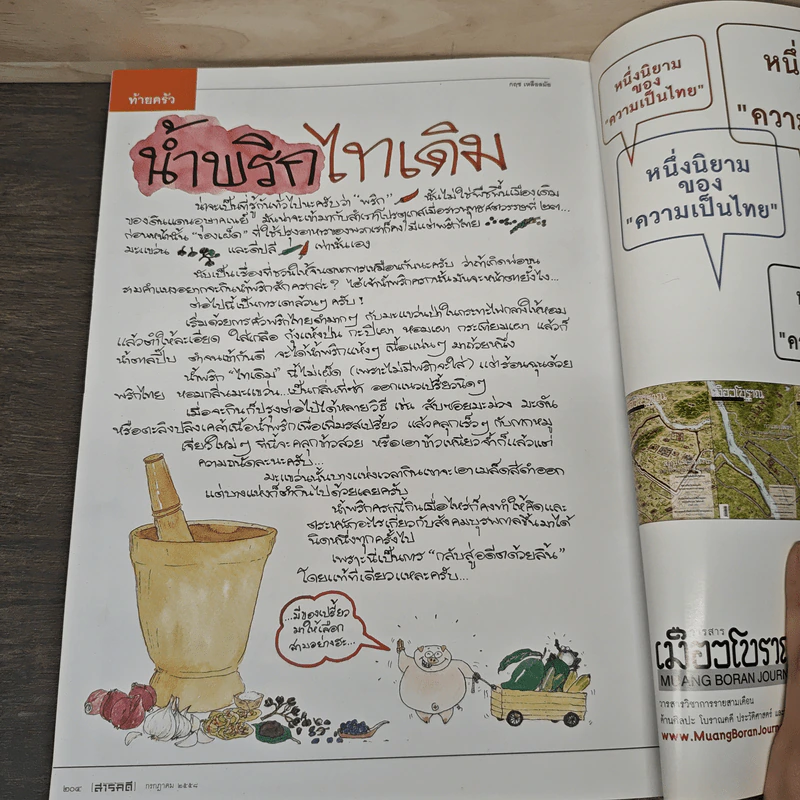 ท้ายครัว
กฤช เหลือลมัย
น้ำพริกไทเดิม
น่าจะเป็นที่รู้กันทั่วไปนะครับว่า "พริก" นั้นไม่ใช่พืชพื้นเมืองเดิม
ของดินแดนอุษาคเนย์ มันน่าจะเข้ามากับสำเภาโปรตุเกสเมื่อราวพุทธศตวรรษที่ ๒๑...
ก่อนหน้านั้น "ของเผ็ด" ที่ใช้ปรุงอาหารของพวกเราก็คงมีแต่พริกไทย
มะแขว่น และดีปลี เท่านั้นเอง
นับเป็นเรื่องที่ชวนให้จินตนาการเหมือนกันนะครับ ว่าถ้าเกิดพ่อขุน
รามคำแหงอยากจะกินน้ำพริกสักครกล่ะ? ไอ้เจ้าน้ำพริกครกนั้นมันจะหน้าตายังไง...
ต่อไปนี้เป็นการเดาล้วนๆ ครับ!
เริ่มด้วยการคั่วพริกไทยดำมากๆ กับมะแขว่นป่าในกระทะไฟกลางให้หอม
แล้วตำให้ละเอียด ใส่เกลือ กุ้งแห้งป่น กะปิเผา หอมเผา กระเทียมเผา แล้วก็
น้ำตาลปี๊บ ตำจนเข้ากันดี จะได้น้ำพริกแห้งๆ เนื้อแน่นๆ มาถ้วยหนึ่ง
น้ำพริก "ไทเดิม" นี้ไม่เผ็ด (เพราะไม่มีพริกจะใส่) แต่ร้อนฉุนด้วย
พริกไทย หอมกลิ่นมะแขว่น...เป็นกลิ่นที่ซ่า ออกแนวเปรี้ยวนิดๆ
เมื่อจะกินก็ปรุงต่อไปได้หลายวิธี เช่น สับซอยมะม่วง มะดัน
หรือตะลิงปลิงเคล้าเนื้อน้ำพริกเพื่อเพิ่มรสเปรี้ยว แล้วคลุกเร็วๆ กับกากหมู
เจียวใหม่ๆ ทีนี้จะคลุกข้าวสวย หรือเอาข้าวเหนียวจ้ำก็แล้วแต่
ความถนัดละนะครับ...
มะแขว่นนั้นบางแห่งเวลากินเขาจะเอาเมล็ดสีดำออก
แต่บางแห่งก็ตำกินไปด้วยเลยครับ
น้ำพริกครกนี้กินเมื่อไหร่ก็คงทำให้คิดและ
ตระหนักอะไรเกี่ยวกับสังคมบุรพกาลขึ้นมาได้
นิดหนึ่งทุกครั้งไป
เพราะนี่เป็นการ "กลับสู่อดีตด้วยลิ้น"
โดยแท้ทีเดียวแหละครับ...
...มีของเปรี้ยว
มาให้เลือก
สามอย่างฮะ...
๒๐๔ สารคดี กรกฎาคม ๒๕๕๘
หนึ่งนิยาม
ของ
"ความเป็นไทย"
หนึ่ง
"ความ
หนึ่งนิยาม
ของ
"ความเป็นไทย"
วารสาร
เมืองโบราณ
MUANG BORAN JOURN
วารสารวิชาการรายสามเดือน
ด้านศิลปะ โบราณคดี ประวัติศาสตร์ และ
www.MuangBoranJourn